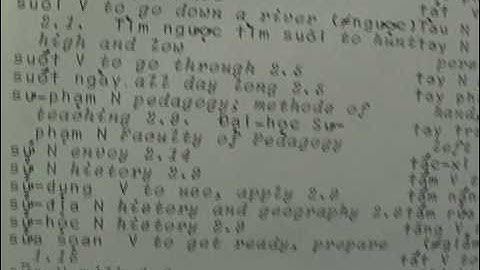 suối V to go down a river (≠ngược)
2.1. Tìm ngược tìm suối to hunt
high and low
suốt V to go through 2.5
suốt ngày all day long 2.5
sư=phạm N pedagogy, methods of
teaching 2.9. Đại=học Sư=
phạm N Faculty of Pedagogy
sứ N envoy 2.14
sử N history 2.9
sử=dụng V to use, apply 2.9
sử=địa N history and geography 2.9
sử=học N history 2.9
sửa soạn V to get ready, prepare
1.15
tất V
tàu N
tay N
tay
hand
tay
left
tấc=xi
tắm V
tắm
tắm rửa
tăng V
(≠giảm
tắt V